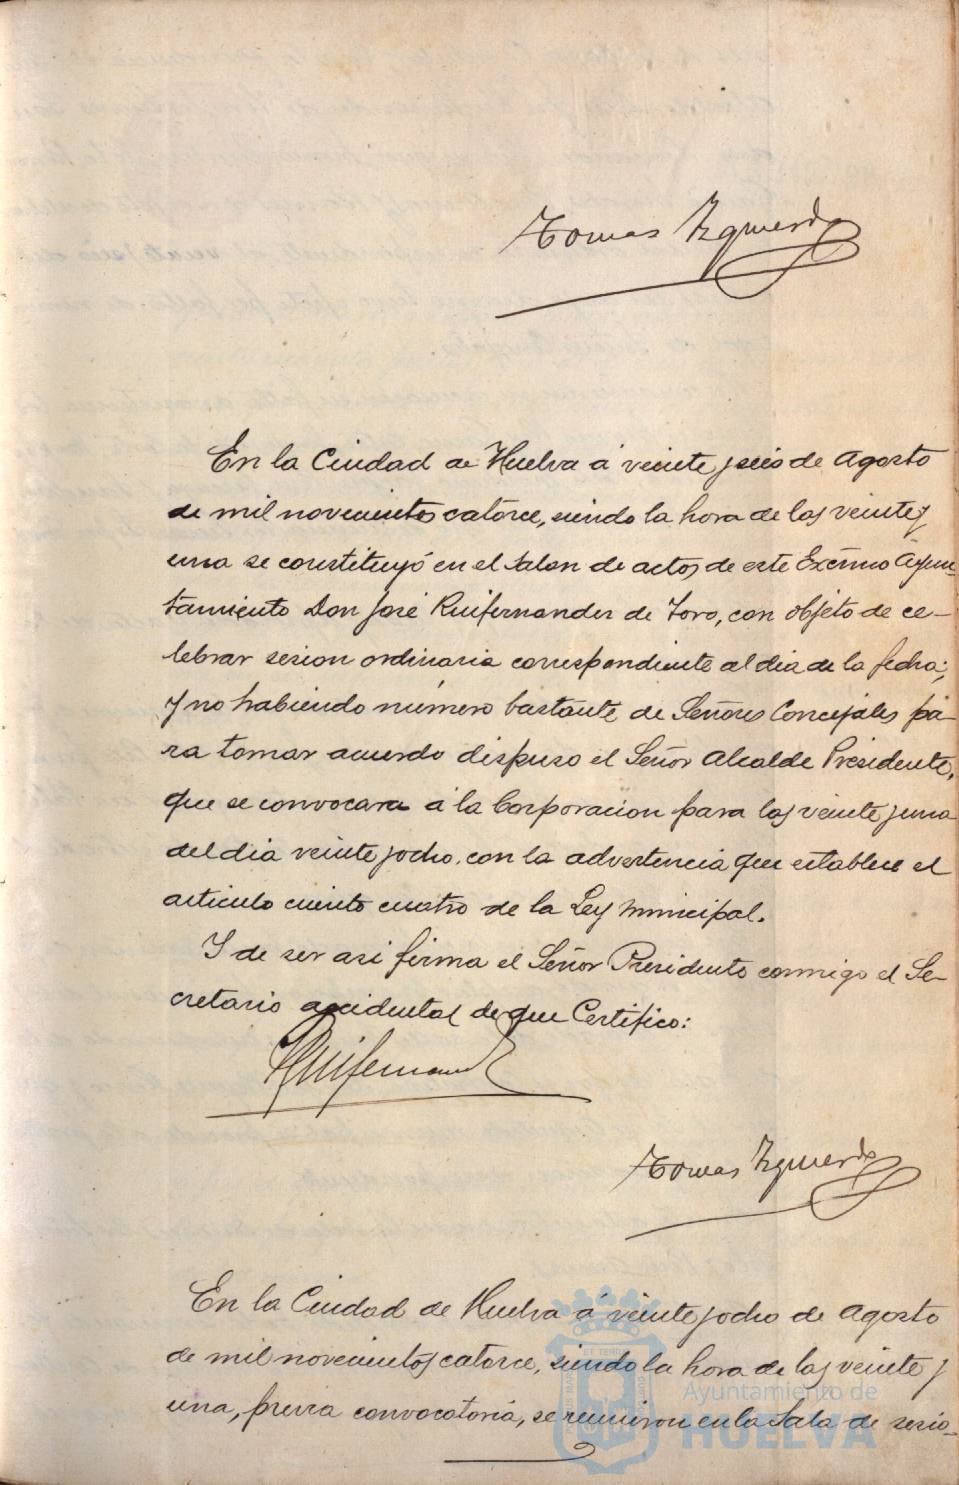 Tomas Izquierdo
En la Ciudad de Huelva á veinte y seis de Agosto
de mil novecientos catorce, siendo la hora de las veinte y
una se constituyó en el salon de actos de este Excmo Ayun-
tamiento Don José Ruifernandez de Toro, con objeto de ce-
lebrar sesion ordinaria correspondiente al dia de la fecha;
y no habiendo número bastante de Señores Concejales pa-
ra tomar acuerdo dispuso el Señor Alcalde Presidente,
que se convocara á la Corporacion para las veinte y una
del dia veinte y ocho, con la advertencia que establece el
articulo ciento cuatro de la Ley Municipal.
Y de ser asi firma el Señor Presidente conmigo el Se-
cretario accidental de que Certifico:
Ruifernandez
Tomas Izquierdo
En la Ciudad de Huelva á veinte y ocho de Agosto
de mil novecientos catorce, siendo la hora de las veinte y
una, previa convocatoria, se reunieron en la Sala de sesio-
Ayuntamiento de
HUELVA